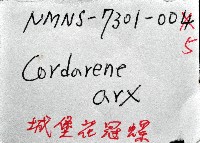 NMNS-7301-004
5
Cordarene
arx
城堡花冠螺